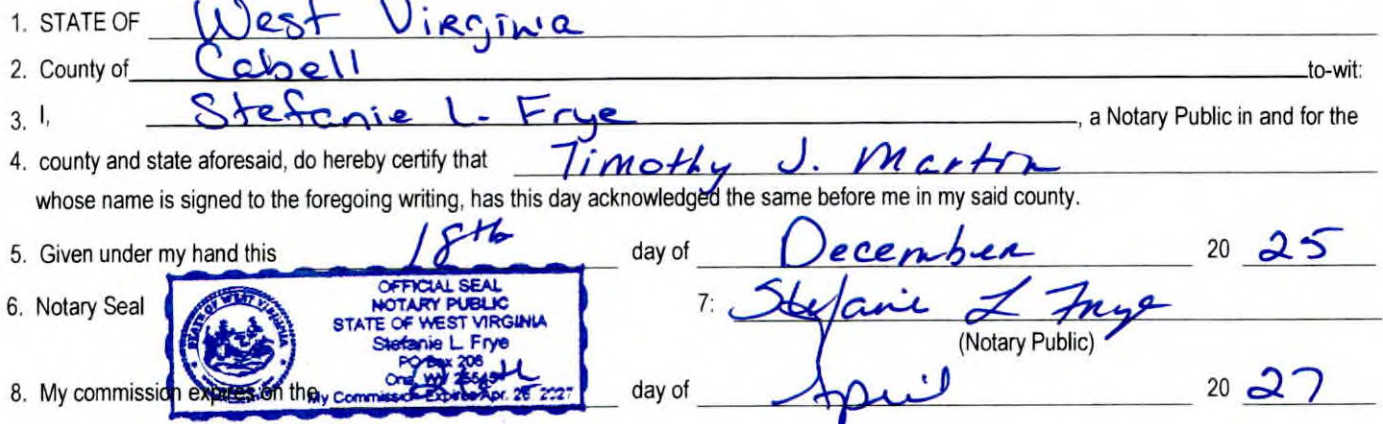 1. STATE OF West Virginia
2. County of Cabell to-wit:
3. I, Stefanie L. Frye, a Notary Public in and for the
4. county and state aforesaid, do hereby certify that Timothy J. Martin
whose name is signed to the foregoing writing, has this day acknowledged the same before me in my said county.
5. Given under my hand this 18th day of December 20 25
6. Notary Seal
STATE OF WEST VIRGINIA
OFFICIAL SEAL
NOTARY PUBLIC
STATE OF WEST VIRGINIA
Stefanie L. Frye
PO Box 206
Ona, WV 25545
My Commission Expires Apr. 26 2027
7: Stefanie L Frye
(Notary Public)
8. My commission expires on the day of April 20 27